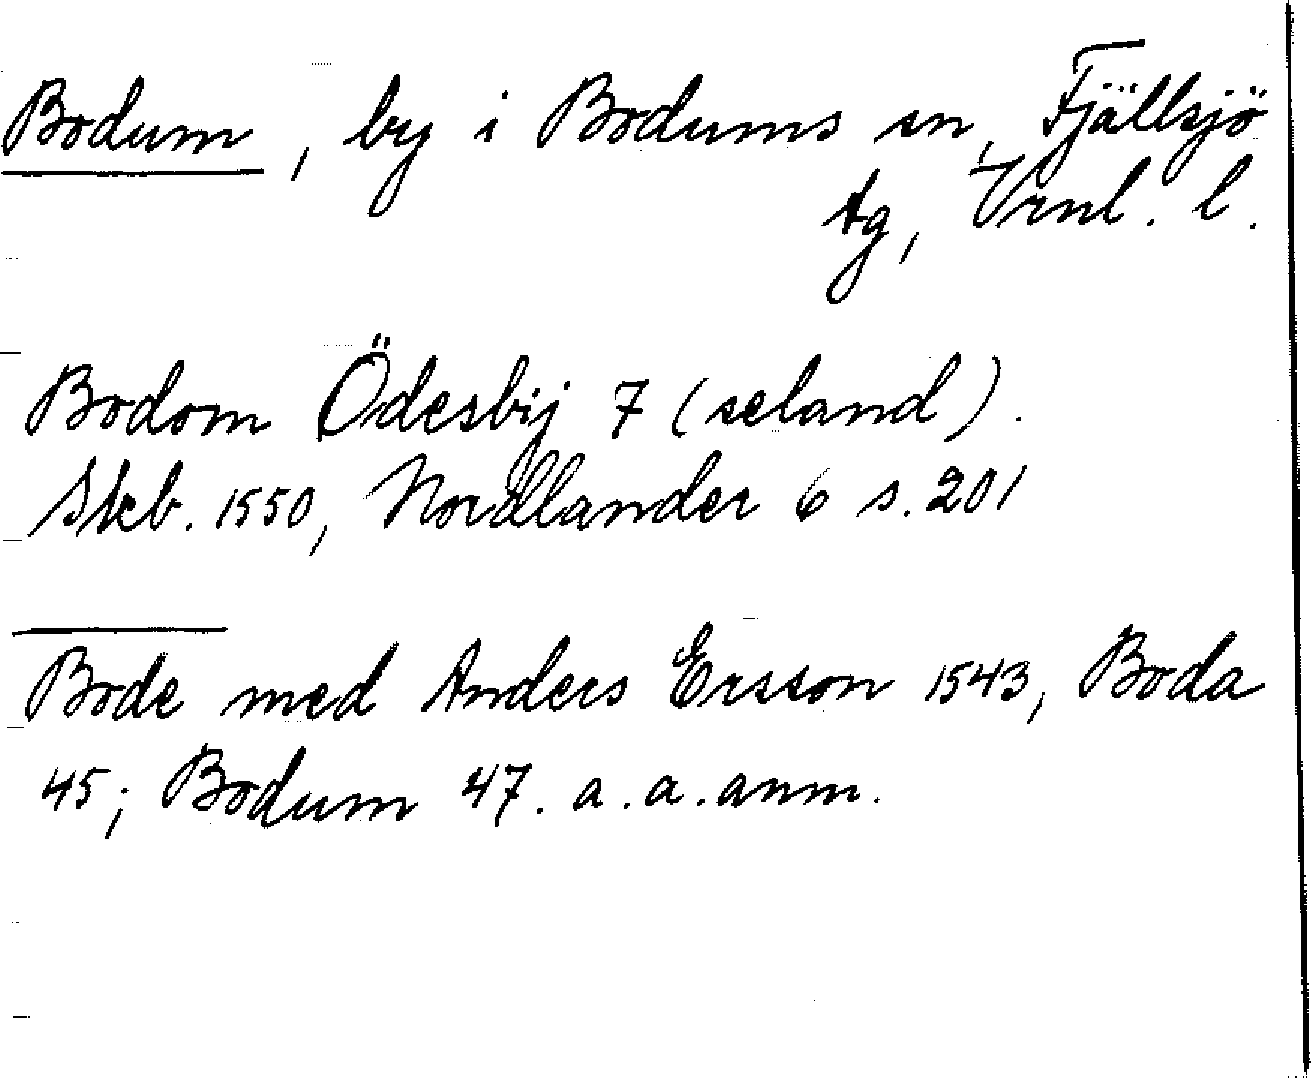 Bodum, by i Bodums sn, Fjällsjö
tg, Vrnl. l.
Bodom Ödesbij 7 (seland).
Skb. 1550, Nordlander 6 s. 201
Bode med Anders Ersson 1543, Boda
45; Bodum 47. a. a. anm.